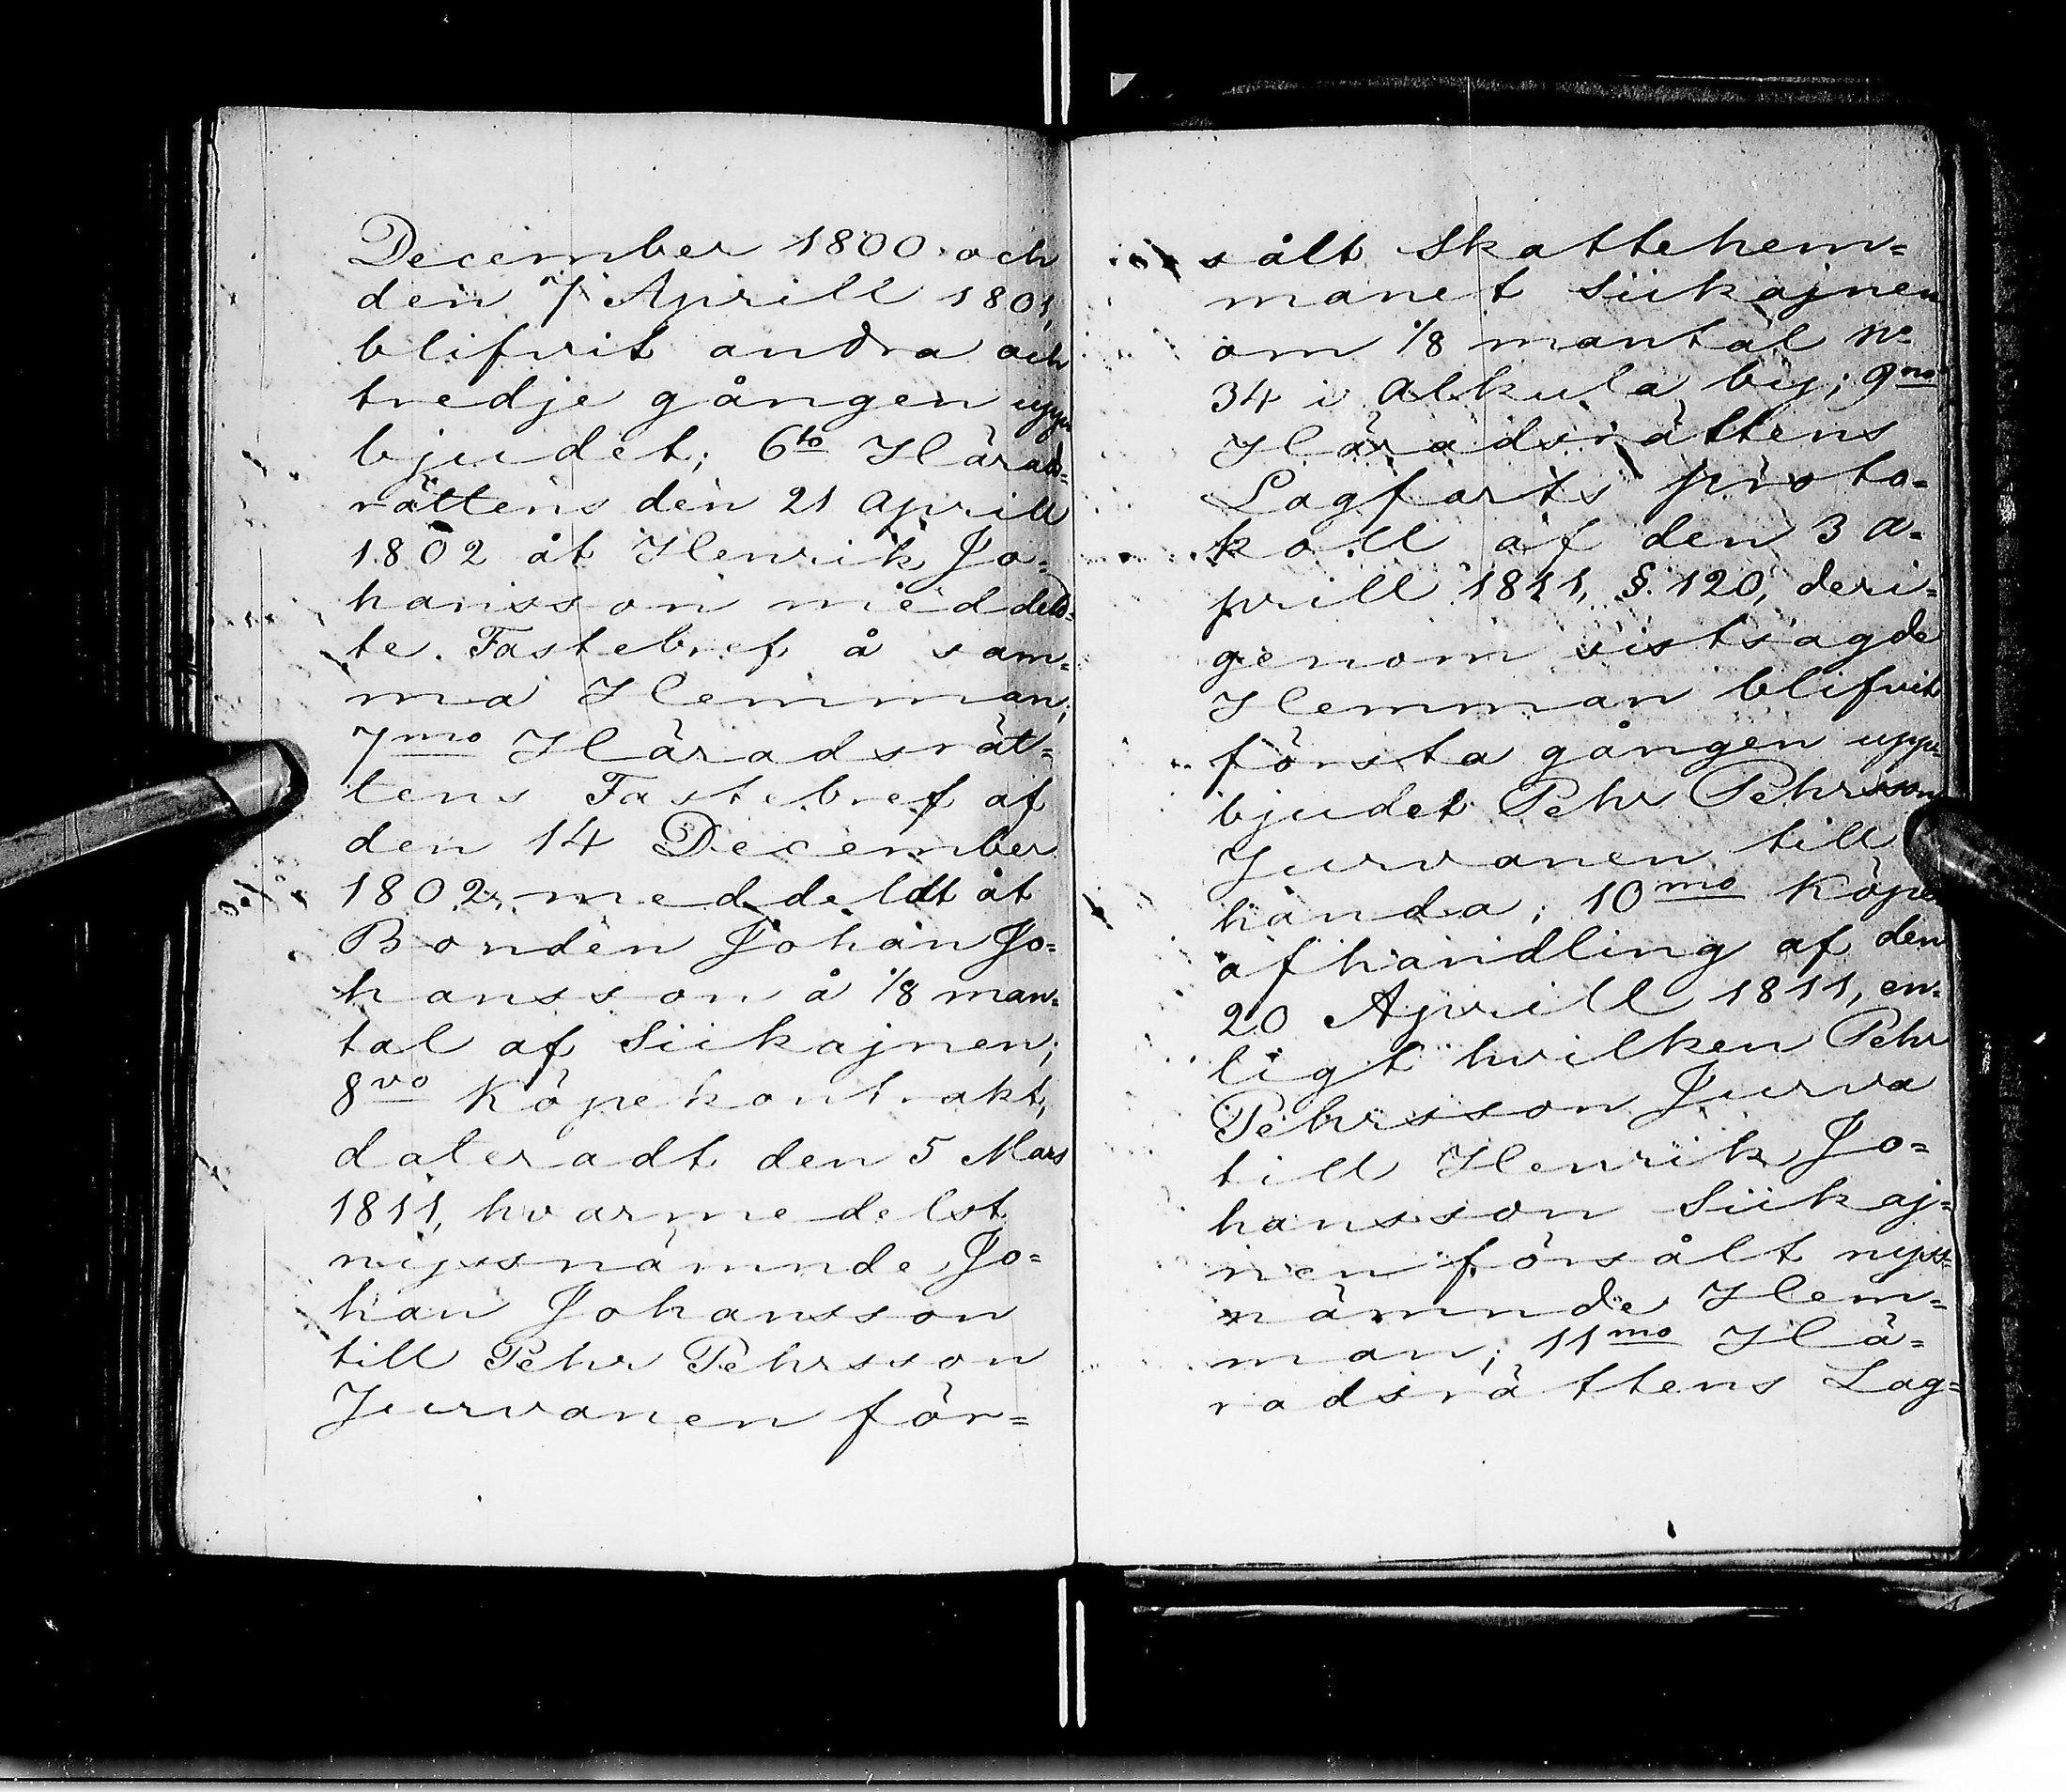 December 1800 och
den 7 Aprill 1801,
blifvit andra och
tredje gången upp-
bjudet; 6to Härads-
rättens den 21 Aprill
1802 åt Henrik Jo-
hansson meddeld-
te Fastebref å sam-
ma Hemman;
7mo Häradsrät-
tens Fastebref af
den 14 December
1802, meddeldt åt
Bonden Johan Jo-
hansson å 1/8 man-
tal af Siikajnen;
8vo Köpekontrakt,
dateradt den 5 Mars
1811, hvarmedelst
nyssnämnde Jo-
han Johansson
till Pehr Pehrsson
Jurvanen för-
sålt Skattehem-
manet Siikajnen
om 1/8 mantal No
34 i Alkula by; 9no
Häradsrättens
Lagfarts proto-
koll af den 3 A-
prill 1811, §. 120, deri-
genom sistsagde
Hemman blifvit
första gången upp-
bjudet Pehr Pehrsson
Jurvanen till
handa; 10mo Köpe
afhandling af den
20 Aprill 1811, en-
ligt hvilken Pehr
Pehrsson Jurva
till Henrik Jo-
hansson Siikaj-
nen försålt nyss-
nämnde Hem-
man; 11mo Hä-
radsrättens Lag-